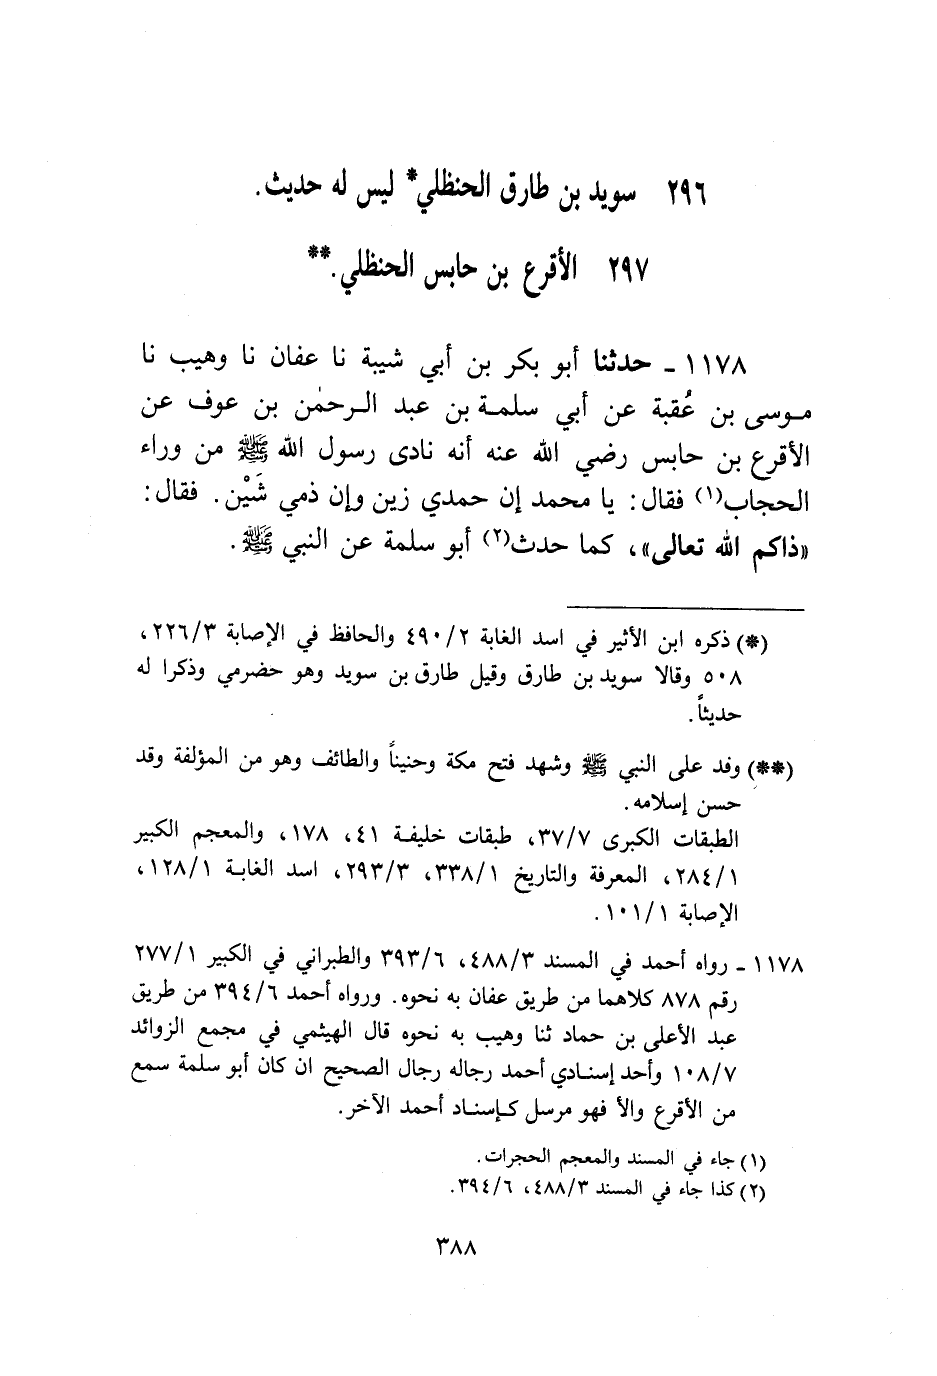 ٢٩٦ سويد بن طارق الحنظلي* ليس له حديث.
٢٩٧ الأقرع بن حابس الحنظلي.**
١١٧٨ ـ حدثنا أبو بكر بن أبي شيبة نا عفان نا وهيب نا
موسى بن عُقبة عن أبي سلمة بن عبد الرحمٰن بن عوف عن
الأقرع بن حابس رضي الله عنه أنه نادى رسول الله ﷺ من وراء
الحجاب(١) فقال: يا محمد إن حمدي زين وإن ذمي شَيْن. فقال:
«ذاكم الله تعالى»، كما حدث(٢) أبو سلمة عن النبي ﷺ.
(*) ذكره ابن الأثير في اسد الغابة ٤٩٠/٢ والحافظ في الإصابة ٢٢٦/٣،
٥٠٨ وقالا سويد بن طارق وقيل طارق بن سويد وهو حضرمي وذكرا له
حديثاً.
(**) وفد على النبي ﷺ وشهد فتح مكة وحنيناً والطائف وهو من المؤلفة وقد
حسن إسلامه.
الطبقات الكبرى ٣٧/٧، طبقات خليفة ٤١، ١٧٨، والمعجم الكبير
٢٨٤/١، المعرفة والتاريخ ٣٣٨/١، ٢٩٣/٣، اسد الغابة ١٢٨/١،
الإصابة ١٠١/١.
١١٧٨ ـ رواه أحمد في المسند ٤٨٨/٣، ٣٩٣/٦ والطبراني في الكبير ٢٧٧/١
رقم ٨٧٨ كلاهما من طريق عفان به نحوه. ورواه أحمد ٣٩٤/٦ من طريق
عبد الأعلى بن حماد ثنا وهيب به نحوه قال الهيثمي في مجمع الزوائد
١٠٨/٧ وأحد إسنادي أحمد رجاله رجال الصحيح ان كان أبو سلمة سمع
من الأقرع والأ فهو مرسل كإسناد أحمد الآخر.
(١) جاء في المسند والمعجم الحجرات.
(٢) كذا جاء في المسند ٤٨٨/٣، ٣٩٤/٦.
٣٨٨